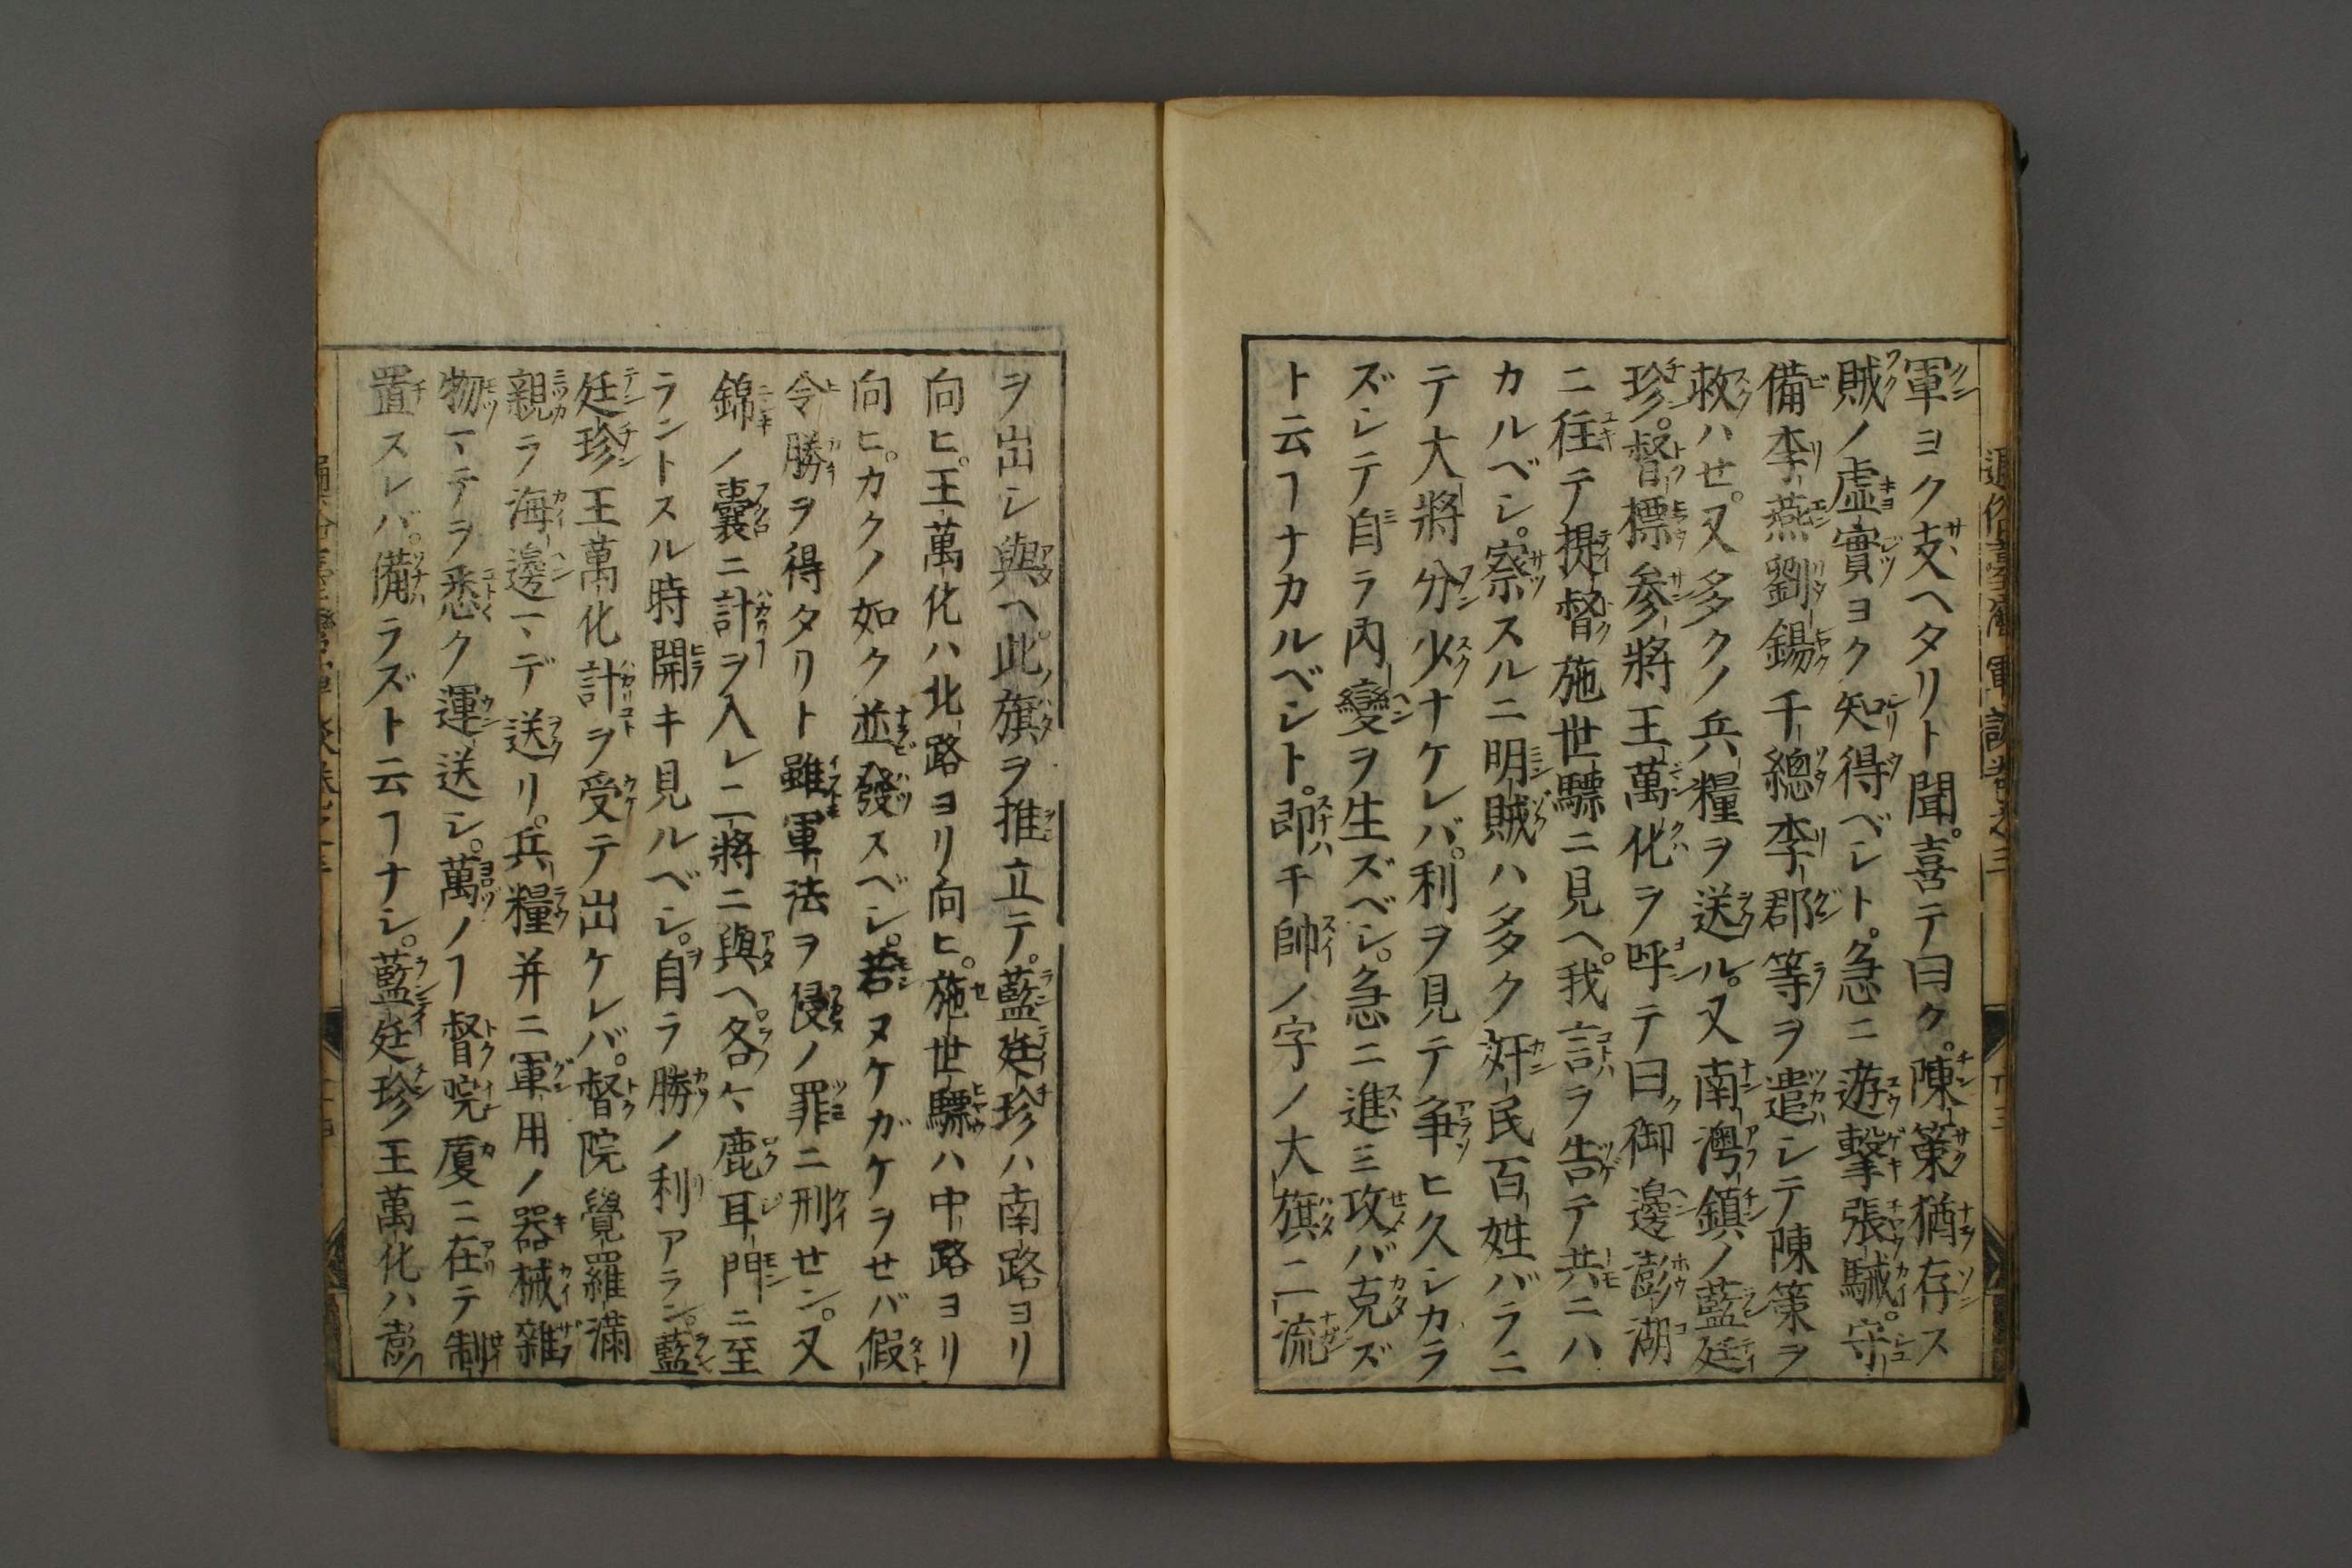 軍ヨク支ヘタリト聞。喜テ曰ク。陳策猶存ス
賊ノ虚實ヨク知得ベシト。急ニ遊擊張駴。守
備李燕劉錫千總李郡等ヲ遣シテ陳策ヲ
救ハせ。又多クノ兵糧ヲ送ル。又南澚鎮ノ藍廷
珍。督標参將王萬化ヲ呼テ曰ク御邊澎湖
ニ徃テ提督施世驃ニ見ヘ。我言ラ告テ共ニハ
カルベシ。察スルニ明賊ハ多ク奸民百姓バラニ
テ大將分少ナケレバ。利ヲ見テ争ヒ久シカラ
ズシテ自ラ內變ヲ生ズベシ。急ニ進ミ攻バ克ズ
ト云ヿナカルベシト。即チ帥ノ字ノ大旗二流
ヲ出シ與ヘ。此旗ヲ推立テ。藍廷珍ハ南路ヨリ
向ヒ。王萬化ハ北路ヨリ向ヒ。施世驃ハ中路ヨリ
向ヒ。カクノ如ク並發スベシ。若ヌケガケヲせバ假
令勝ヲ得タリト雖軍法ヲ侵ノ罪ニ刑せン。又
錦ノ囊ニ計ヲ入レ二將ニ與ヘ。各〻鹿耳門ニ至
ラントスル時開キ見ルベシ。自ラ勝ノ利アラン。藍
廷珍王萬化計ヲ受テ出ケレバ。督院覺羅滿
親ラ海邊マデ送リ。兵糧并ニ軍用ノ器械雜
物マテヲ悉ク運送シ。萬ノヿ督院厦ニ在テ制
置スレバ。備ラズト云ヿナシ。藍廷珍王萬化ハ澎
通俗臺灣軍談卷之三
十三